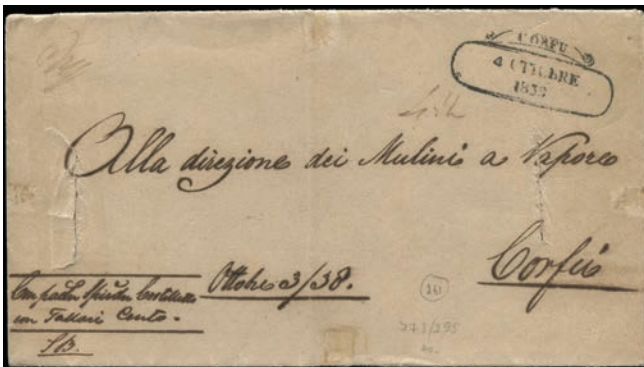 CORFU
4 OTTOBRE
1838
Alla direzione dei Mulini a Vapore
Corfù
Ottobre 3/38.
Spiridon
con Tallari Cento -
SB.
161